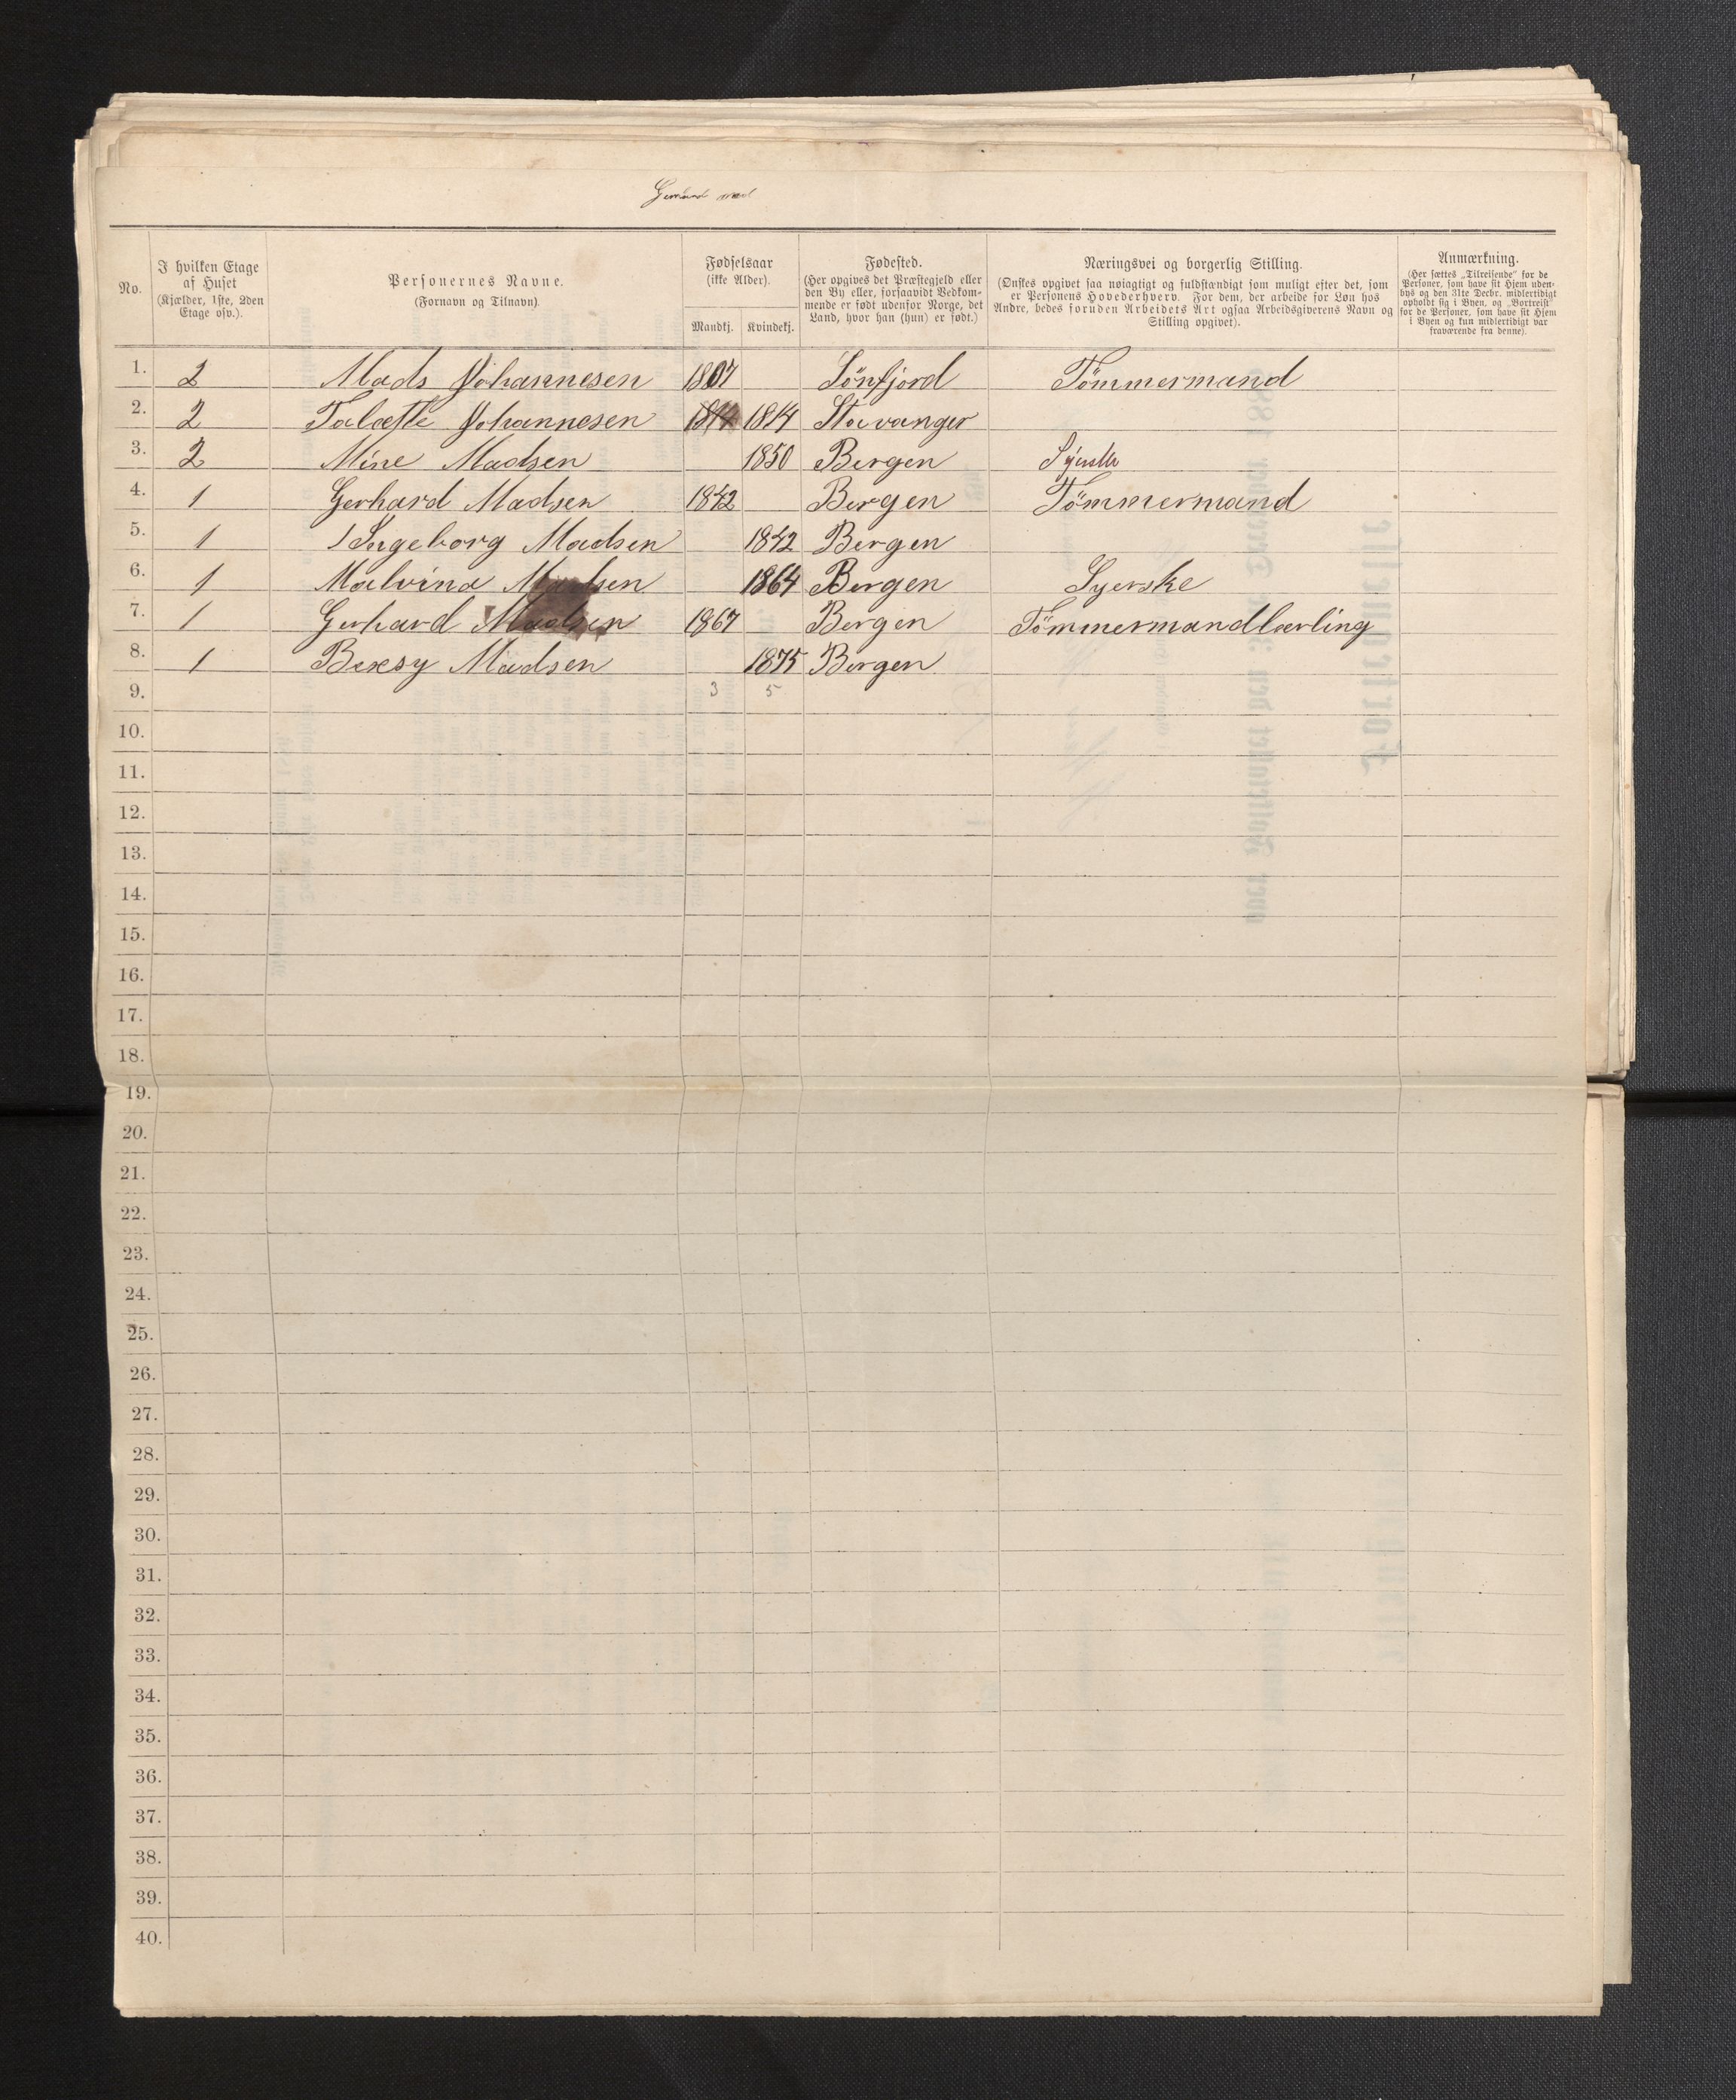 No.
I hvilken Etage
af Huset
(Kjælder, 1ste, 2den
Etage osv.).
Personernes Navne.
(Fornavn og Tilnavn).
Fødselsaar
(ikke Alder).
Mandkj. Kvindekj.
Fødested.
(Her opgives det Præstegjeld eller
den By eller, forsaavidt Vedkom-
mende er født udenfor Norge, det
Land, hvor han (hun) er født.)
Næringsvei og borgerlig Stilling.
(Ønskes opgivet saa nøiagtigt og fuldstændigt som muligt efter det, som
er Personens Hovederhverv. For dem, der arbeide for Løn hos
Andre, bedes foruden Arbeidets Art ogsaa Arbeidsgiverens Navn og
Stilling opgivet).
Anmærkning.
(Her sættes „Tilreisende" for de
Personer, som have sit Hjem uden-
bys og den 31te Decbr. midlertidigt
opholdt sig i Byen, og „Bortreist"
for de Personer, som have sit Hjem
i Byen og kun midlertidigt var
fraværende fra denne).
1. 2 Mads Johannesen 1807 Sönfjord Tömmermand
2. 2 Johannesen 1814 1814 Stavanger
3. 2 Mine Madsen 1850 Bergen
4. 1 Gerhard Madsen 1842 Bergen Tömmermand
5. 1 Ingeborg Madsen 1842 Bergen
6. 1 Malvina Madsen 1864 Bergen Syerske
7. 1 Gerhard Madsen 1867 Bergen Tömmermandlærling
8. 1 Madsen 1875 Bergen
9. 3 5
10.
11.
12.
13.
14.
15.
16.
17.
18.
19.
20.
21.
22.
23.
24.
25.
26.
27.
28.
29.
30.
31.
32.
33.
34.
35.
36.
37.
38.
39.
40.